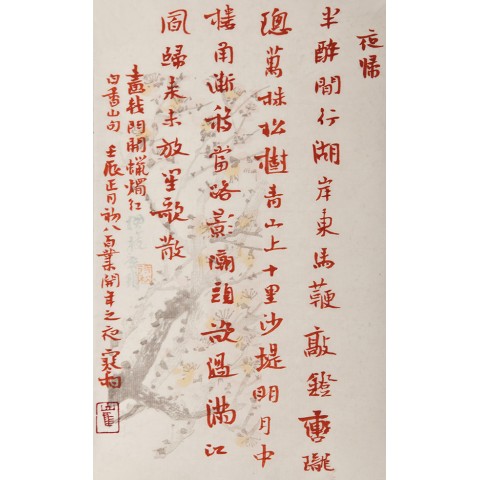 夜歸
半醉閒行湖岸東馬鞭敲鐙轡瓏
璁萬株松樹青山上十里沙堤明月中
樓角漸移當路影潮頭欲過滿江
風歸来未放笙歌散
畫戟門開蠟燭紅
白香山句 壬辰正月初八百業開年之夜